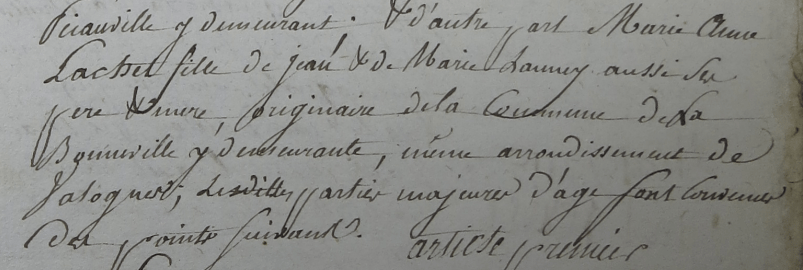 Picauville y demeurant; & d'autre part Marie Anne
Lachey fille de jean & de Marie Launey aussi ses
pere & mere, originaire de la Commune de La
Bonneville y demeurante, même arrondissement de
Valognes; Lesdittes parties majeures d'age sont Convenues
des points suivants.
article premier